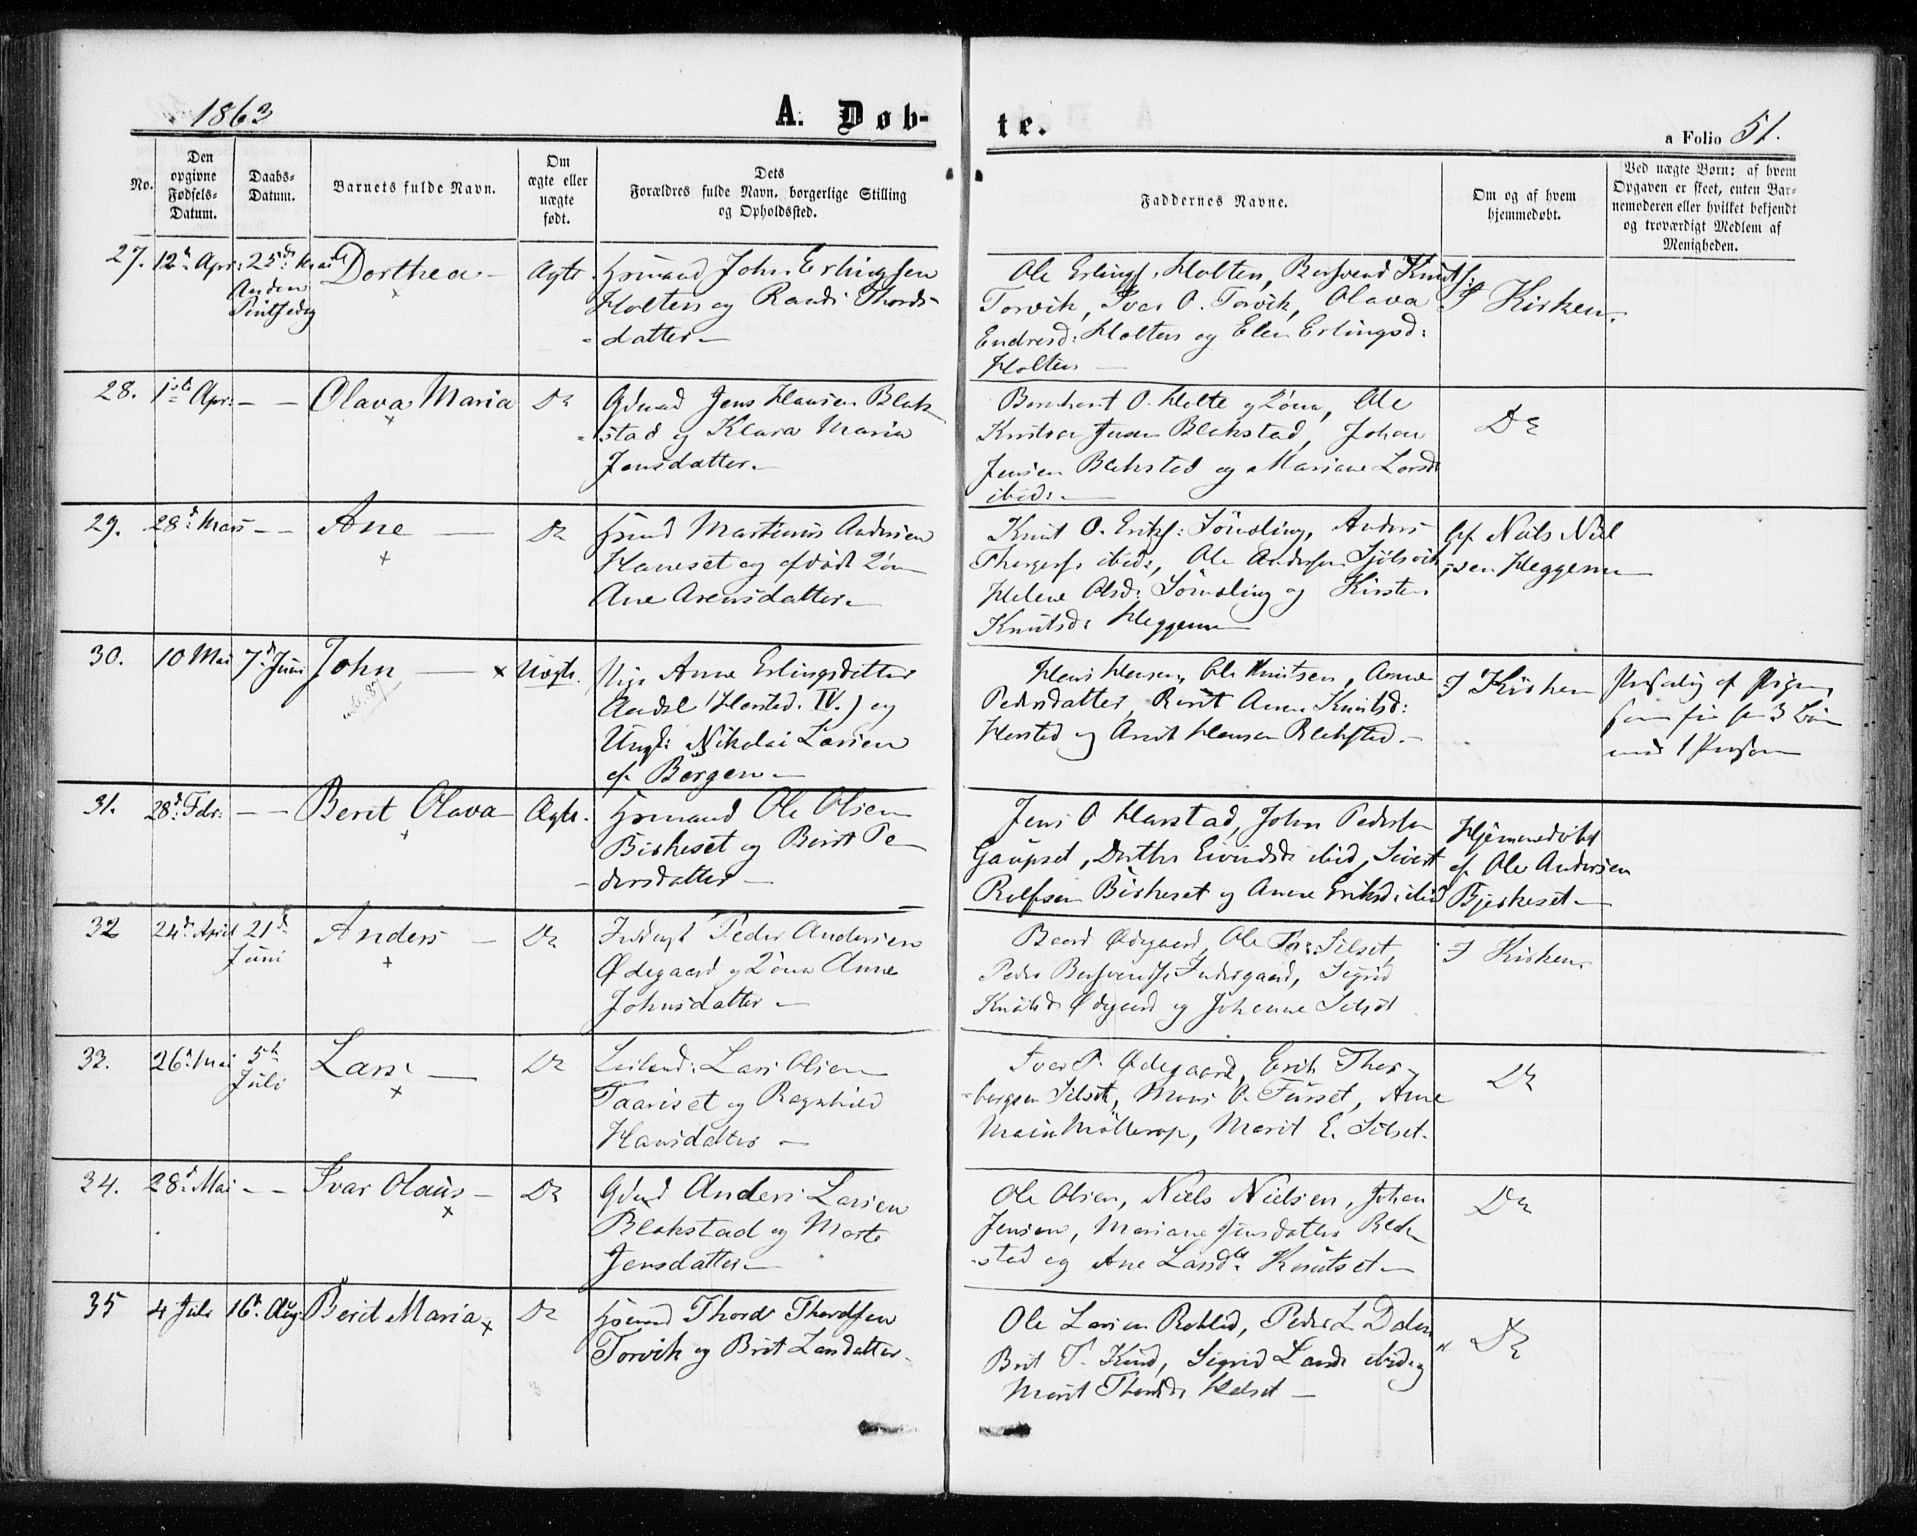 1863
A. Døb-
te.
a Folio 51.
No.
Den opgivne Fødsels-Datum.
Daabs-Datum.
Barnets fulde Navn.
Om ægte eller uægte født.
Dets
Forældres fulde Navn, borgerlige Stilling
og Opholdssted.
Faddernes Navne.
Om og af hvem
hjemmedøbt.
Ved uægte Børn: af hvem
Opgaven er skeet, enten Bar-
nemoderen eller hvilket bekjendt
og troværdigt Medlem af
Menigheden.
27. 12te Apr: 25de
Anden
Pintsedag
Dorthea —
Ægte
John Erlingsen
Holten og Randi Thords-
datter —
Ole Erlings: Holten, Knuts:
Torvik, Ivar O. Torvik, Olava
Endresd: Holten og Elen Erlingsd:
Holten —
I Kirken.
28. 1ste Apr: — —
Olava Maria
Do
Gdmd Jens Hansen Blak-
stad og Klara Maria
Jensdatter —
Bernhard O. Holte og Kona, Ole
Knutsen Blakstad, Johan
Jensen Blakstad og Mariane Larsd:
ibid: —
Do
29. 28d Mars — —
Ane —
Do
Martinus Andersen
Haneset og afdøde Kone
Ane Arensdatter —
Knut O. Eriks: Sönsling, Anders
Thorgers: ibid:, Ole Andersen Sjölsvik,
Helene Olsd: Sönsling og Kirsten
Knutsd: Heggem
af Niels Niel-
sen Heggem —
30. 10 Mai 7d Juni
John —
Uægte.
Pige Anne Erlingsdatter
(Harstad. IV.) og
Ungk: Nikolai Larsen
af Bergen —
Hans Hansen, Ole Knutsen, Anne
Pedersdatter, Berit Anne Knutsd:
Harstad og Hansen Blakstad. —
I Kirken
af Pigen,
3 Børn
med 1 Person
31. 28d Febr: — —
Berit Olava
Ægte.
Ole Olsen
Birkeset og Berit Pe-
dersdatter —
Jens O Harstad, John Pedersen
Gaupset, Eivindsd: ibid, Sivert
Rolfsen Birkeset og Anne Eriksd: ibid
Hjemmedøbt
af Ole Andersen
Bjerkeset —
32 24d April 21d
Juni
Anders —
Do
Peder Andersen
Ødegaard og Kona Anne
Johnsdatter —
Baard Ødegaard, Ole Silset,
Peder Indergaard, Sigrid
Knutsd: Ødegaard og Johanne Silset
I Kirken.
33. 26d Mai 5te
Juli
Lars —
Do
Leilend: Lars Olsen
Taariset og Ragnhild
Hansdatter —
Ivar P. Ødegaard, Erik Thor-
bergsen Silset, Mons O. Fursset, Ane
Möllerop, Marit E. Silset.
Do
34. 28d Mai — —
Ivar Olaus —
Do
Gdmd Anders Larsen
Blakstad og Marte
Jensdatter —
Ole Olsen, Niels Nielsen, Johan
Jensen, Mariane Jensdatter Blak-
sted og Ane Larsd: Knutset —
Do
35 4 Juli 16d Aug:
Berit Maria
Do
Thord Thordsen
Torvik og Brit Larsdatter
Ole Larsen Peder L. Dalen
Brit T. Sigrid Larsd: ibid og
Marit Thordsd: Helset —
Do